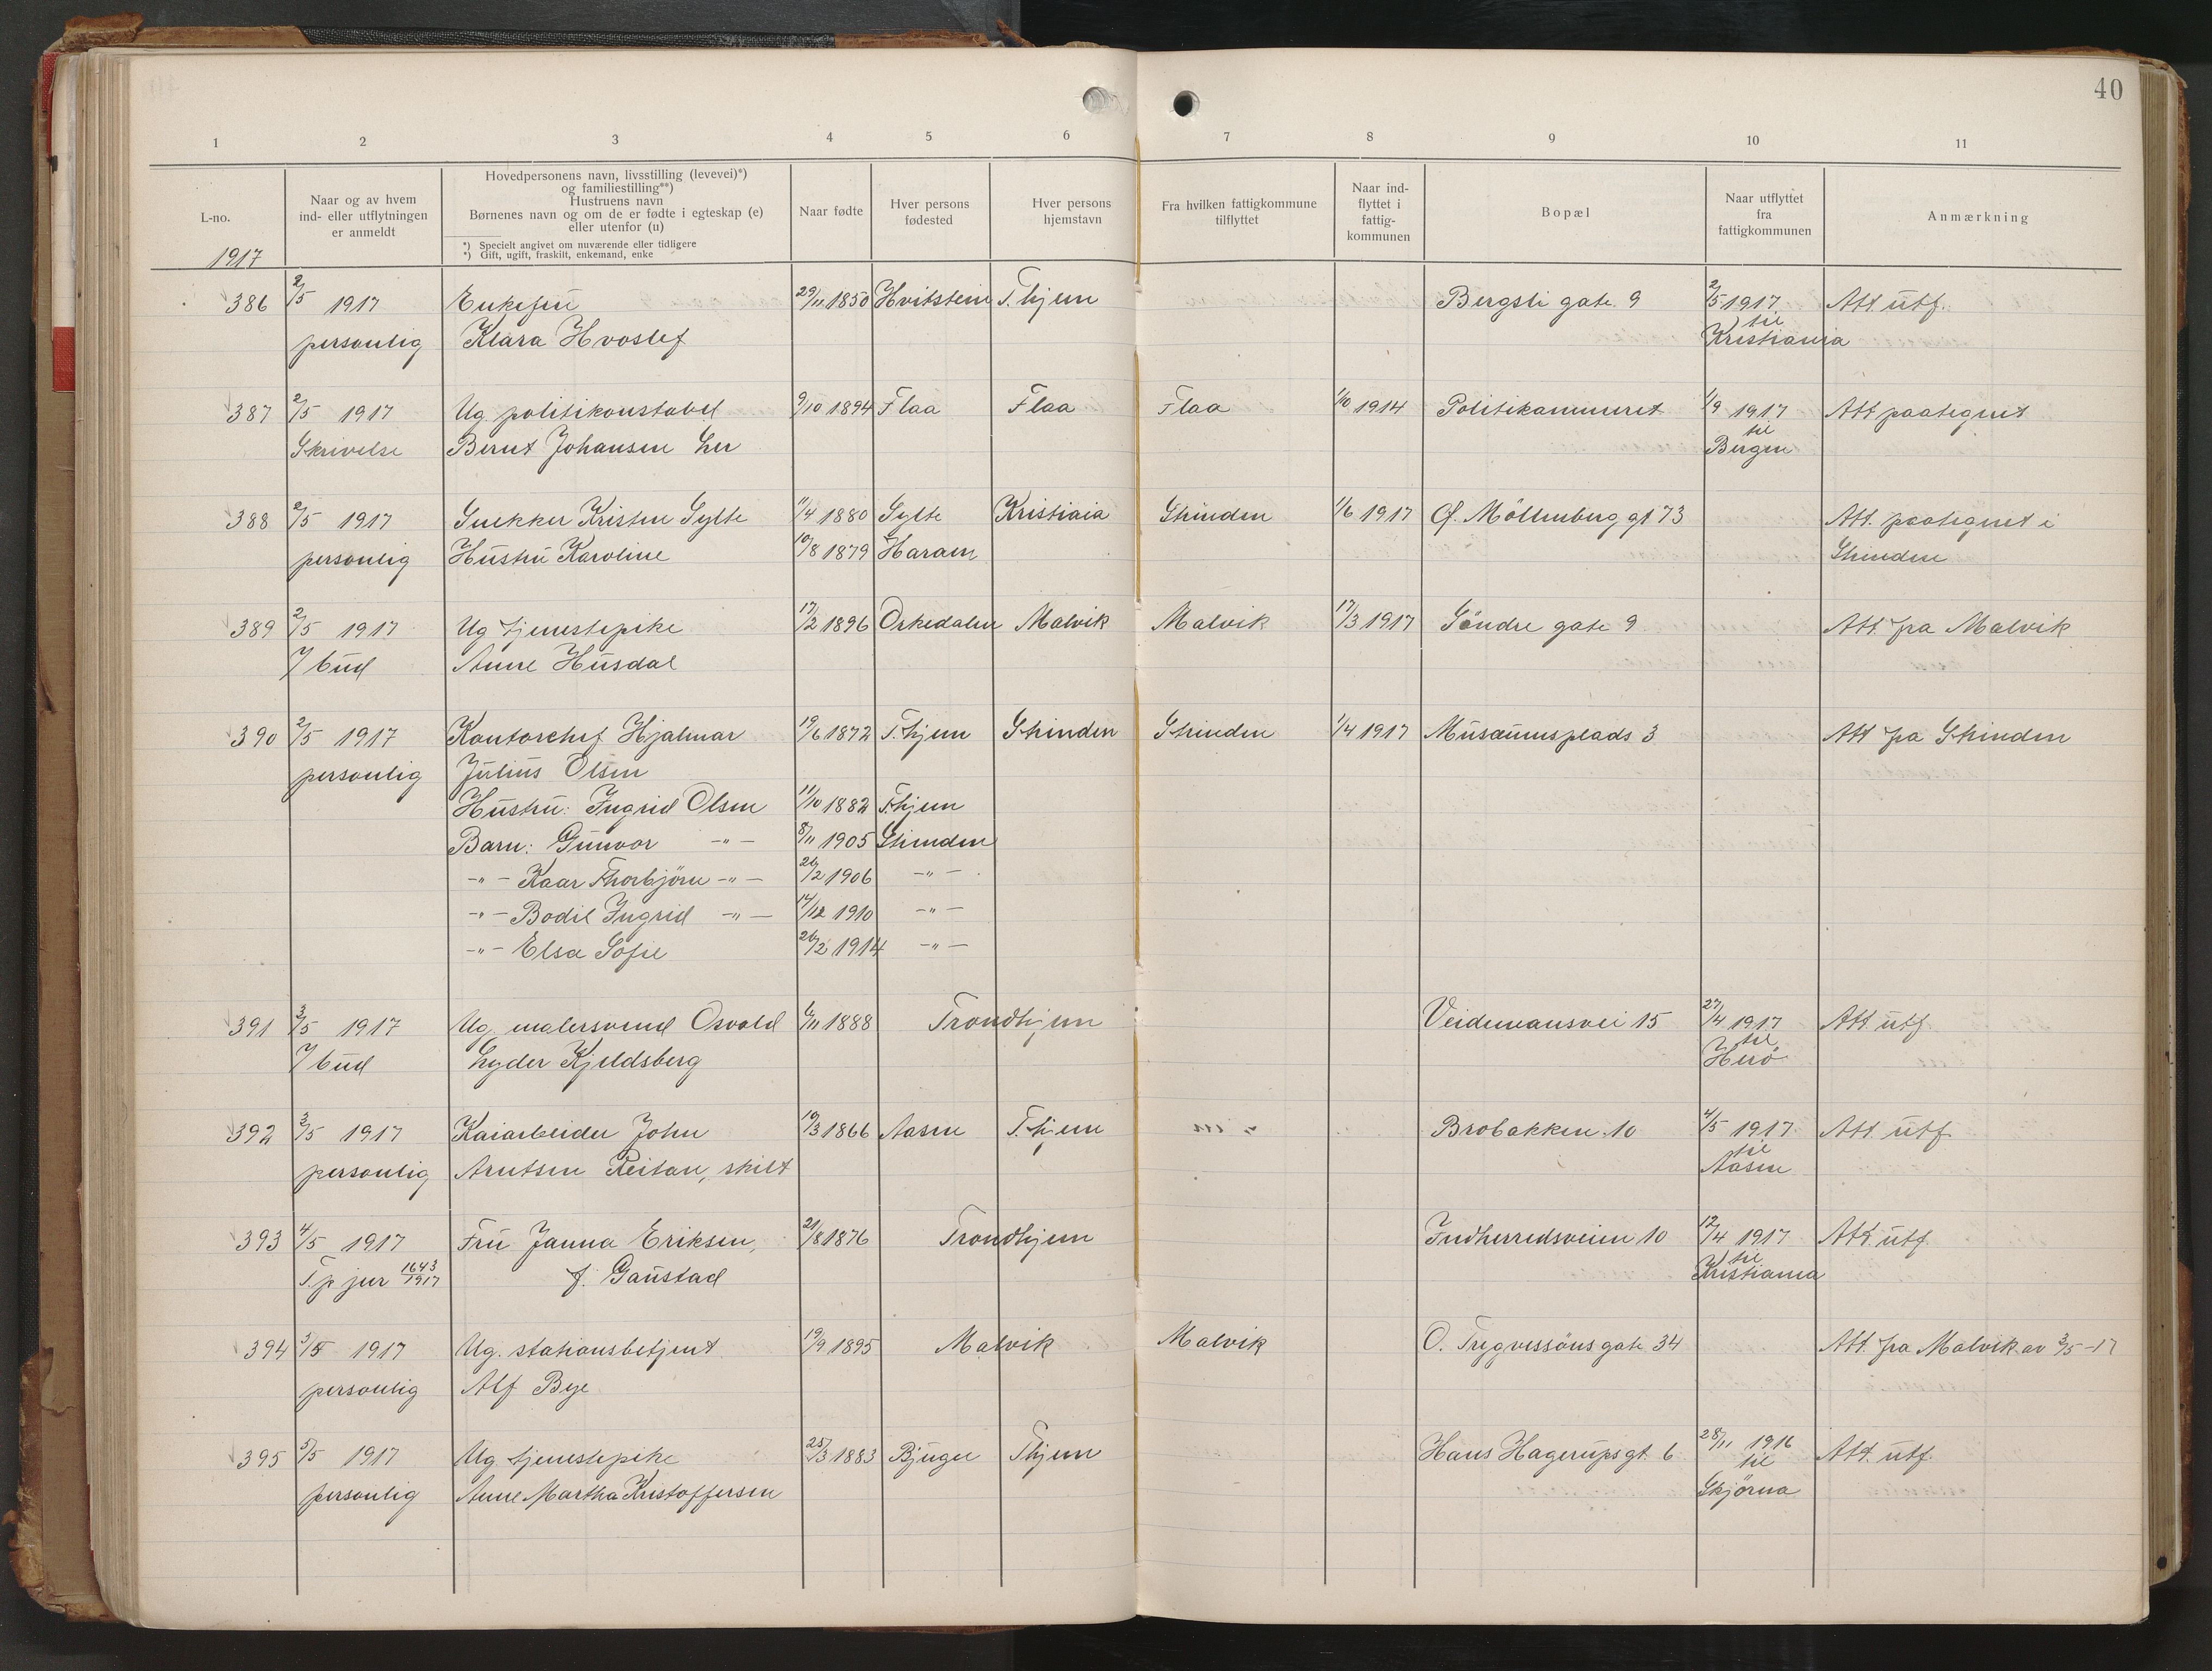 40
1 2 3 4 5 6 7 8 9 10 11
L-no.
1917
Naar og av hvem
ind- eller utflytningen
er anmeldt
Hovedpersonens navn, livsstilling (levevei)*)
og familiestilling**)
Hustruens navn
Børnenes navn og om de er fødte i egteskap (e)
eller utenfor (u)
*) Specielt angivet om nuværende eller tidligere
*) Gift, ugift, fraskilt, enkemand, enke
Naar fødte
Hver persons
fødested
Hver persons
hjemstavn
Fra hvilken fattigkommune
tilflyttet
Naar ind-
flyttet i
fattig-
kommunen
Bopæl
Naar utflyttet
fra
fattigkommunen
Anmærkning
386 2/5 1917 Enkefru 29/11 1850 Hvitstein T.hjem Bergsli gate 9 2/5 1917 Att. utf.
personlig Klara Hvoslef til Kristiania
387 2/5 1917 Ug. politikonstabel 9/10 1894 Flaa Flaa Flaa 1/10 1914 Politikammeret 1/9 1917 Att paategnet
Skrivelse Bernt Johansen Ler til Bergen
388 2/5 1917 Snekker Kristen Sylte 11/4 1880 Sylte Kristiaia Strinden 1/6 1917 Ø. Möllenberg gt 73 Att. paategnet i
personlig Hustru Karoline 10/8 1879 Haram Strinden
389 2/5 1917 Ug tjenestepike 17/2 1896 Orkedalen Malvik Malvik 17/3 1917 Söndre gate 9 Att. fra Malvik
v/ bud Anne Husdal
390 2/5 1917 Kontorchef Hjalmar 19/6 1872 T.hjem Strinden Strinden 1/4 1917 Musæumsplads 3 Att fra Strinden
personlig Julius Olsen
Hustru: Ingrid Olsen 11/10 1882 T.hjem
Barn: Gunvor -"- 8/11 1905 Strinden
-"- Kaar Thorbjörn -"- 26/2 1906 -"-
-"- Bodil Ingrid -"- 14/12 1910 -"-
-"- Elsa Sofie 26/2 1914 -"-
391 3/5 1917 Ug. malersvend Osvald 6/11 1888 Trondhjem Veidemansvei 15 27/4 1917 Att utf.
v/ bud Lyder Kjeldsberg til Herö
392 3/5 1917 Kaiarbeider John 19/3 1866 Aasen T.hjem Brobakken 10 4/5 1917 Att. utf.
personlig Arntsen Reitan, skilt til Aasen
393 4/5 1917 Fru Janna Eriksen, 21/8 1876 Trondhjem Indherredsveien 10 12/4 1917 Att. utf.
T.p jur 1643/1917 f. Gaustad til Kristiania
394 5/5 1917 Ug. stationsbetjent 19/9 1895 Malvik Malvik O. Trygvessöns gate 34 Att. fra Malvik av 3/5-17
personlig Alf Bye
395 5/5 1917 Ug tjenestepike 25/3 1883 Bjugn T.hjem Hans Hagerups gt. 6 28/11 1916 Att. utf.
personlig Anne Martha Kristoffersen til Skjörna